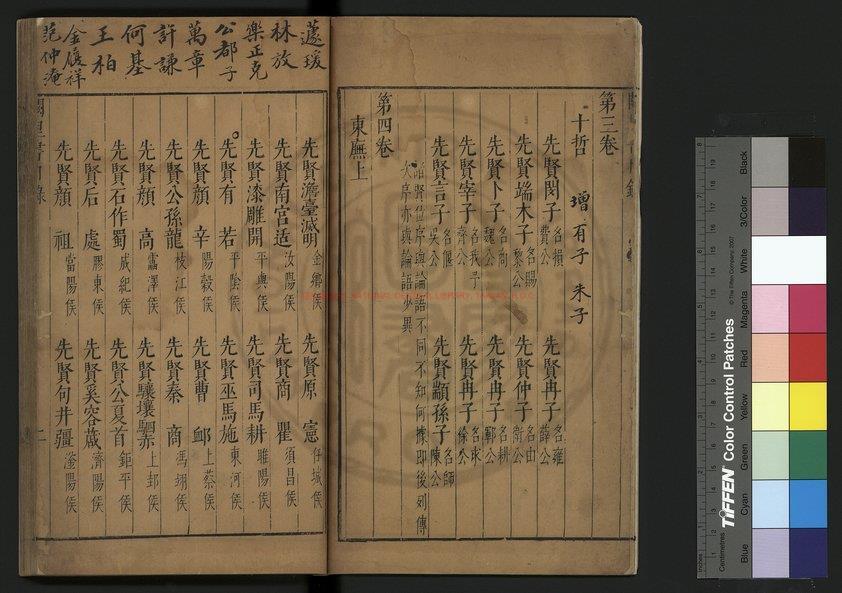 第三卷
十哲 增 有子 朱子
先賢閔子 名損 費公 先賢冉子 名雍 薛公
先賢端木子 名賜 黎公 先賢仲子 名由 衛公
先賢卜子 名商 魏公 先賢冉子 名耕 鄆公
先賢宰子 名我予 齊公 先賢冉子 名求 徐公
先賢言子 名偃 吳公 先賢顓孫子 名師 陳公
諸賢位序與論語不同不知何據即後列傳
次序亦與論語少異
第四卷
東廡上
蘧瑗
林放
樂正克
公都子
萬章
許謙
何基
王柏
金履祥
范仲淹
先賢澹臺滅明 金鄉侯 先賢原憲 任城侯
先賢南宮适 汝陽侯 先賢商瞿 須昌侯
先賢漆雕開 平輿侯 先賢司馬耕 睢陽侯
先賢有若 平陰侯 先賢巫馬施 東河侯
先賢顏辛 陽穀侯 先賢曹卹 上蔡侯
先賢公孫龍 枝江侯 先賢秦商 馮翊侯
先賢顏高 雷澤侯 先賢驤壤駟赤 上邽侯
先賢石作蜀 成紀侯 先賢公夏首 鉅平侯
先賢后處 膠東侯 先賢奚容蒧 濟陽侯
先賢顏祖 當陽侯 先賢句井疆 滏陽侯
闕里書目錄 二
TIFFEN Color Control Patches
© The Tiffen Company, 2007
Centimetres
Inches
Blue
Cyan
Green
Yellow
Red
Magenta
White
3/Color
Black